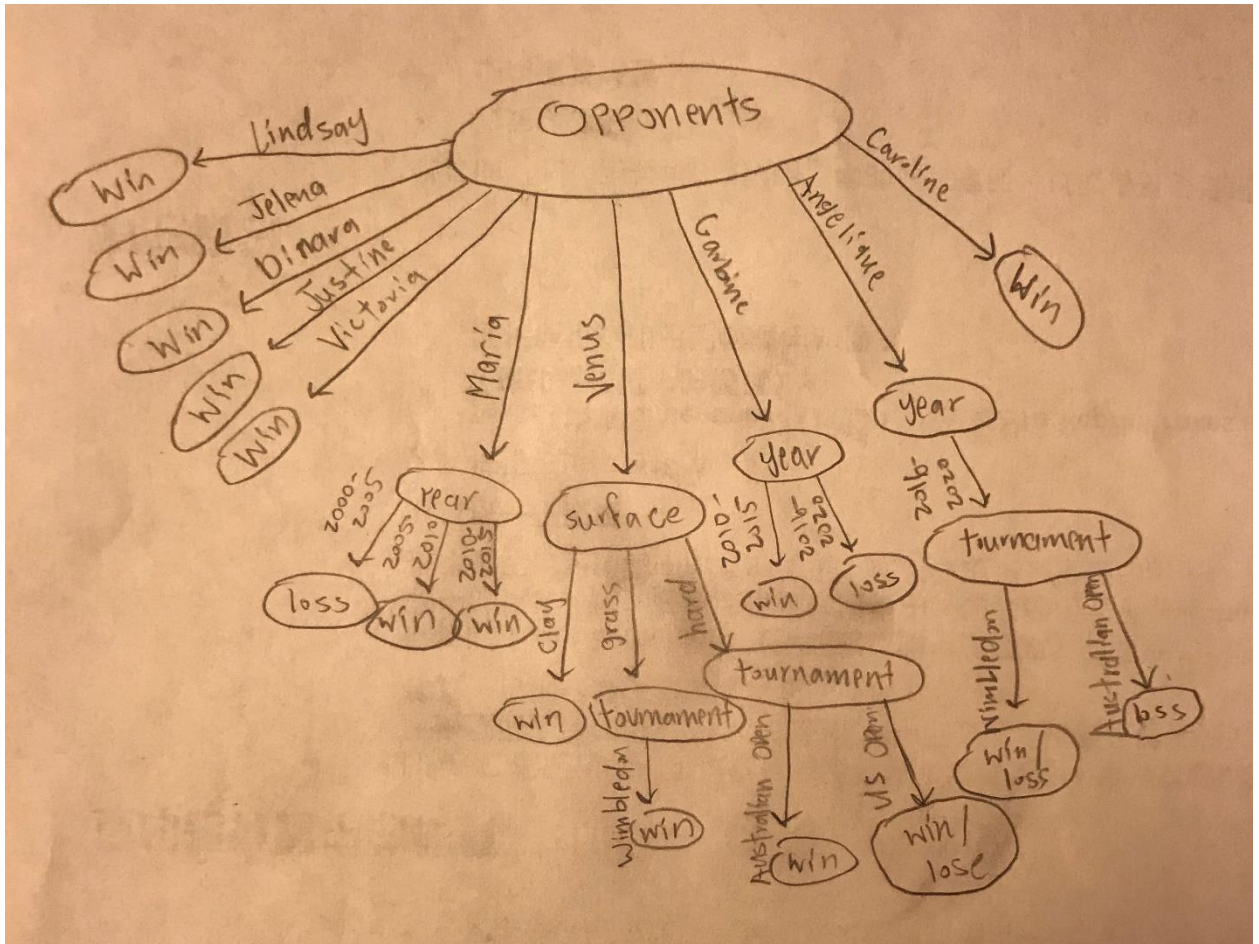 Opponents
Lindsay
Win
Jelena
Win
Dinara
Win
Justine
Win
Victoria
Win
Maria
Year
2000-
2005
loss
2005-
2010
win
2010-
2015
win
Venus
surface
clay
win
grass
tournament
Wimbledon
win
hard
tournament
Australian Open
win
US Open
win/
lose
Garbine
year
2010-
2015
win
2016-
2020
loss
Angelique
year
2016-
2020
tournament
Wimbledon
win/
loss
Australian Open
loss
Caroline
Win